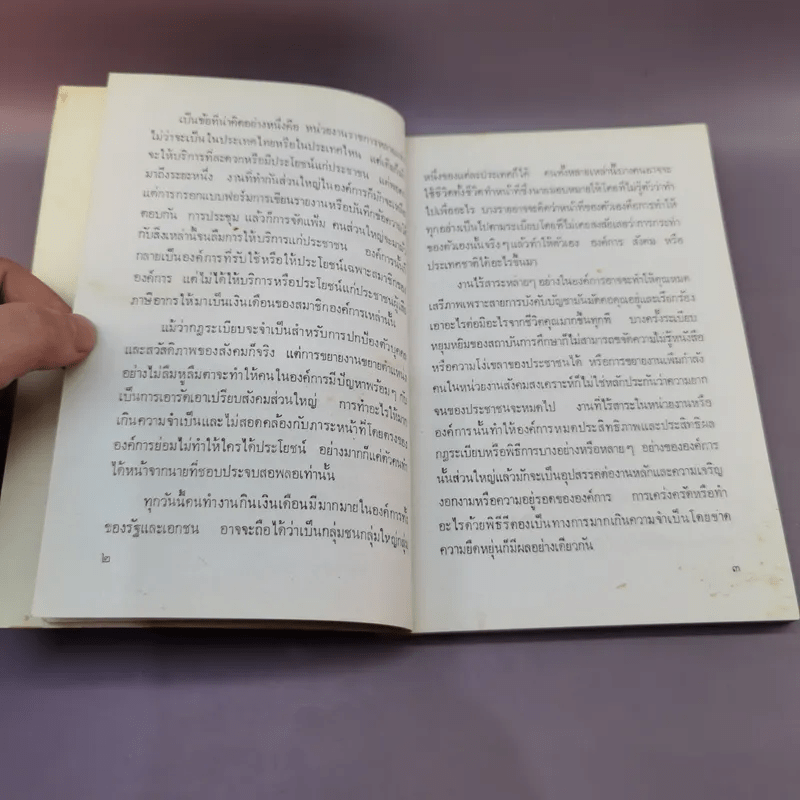 เป็นข้อที่น่าคิดอย่างหนึ่งคือ หน่วยงานราชการหลาย
ไม่ว่าจะเป็นในประเทศไทยหรือในประเทศไหน แต่เดิมก็
จะให้บริการที่สะดวกหรือมีประโยชน์แก่ประชาชน แต่พอ
มาถึงระยะหนึ่ง งานที่ทำกันส่วนใหญ่ในองค์การก็มักจะ
แต่การกรอกแบบฟอร์มการเขียนรายงานหรือบันทึกข้อความ
ตอบกัน การประชุม แล้วก็การจัดแฟ้ม คนส่วนใหญ่จะ
กับสิ่งเหล่านี้จนลืมการให้บริการแก่ประชาชน องค์การนั้นก็
กลายเป็นองค์การที่รับใช้หรือให้ประโยชน์เฉพาะสมาชิก
องค์การ แต่ไม่ได้ให้บริการหรือประโยชน์แก่ประชาชนผู้เสีย
ภาษีอากรให้มาเป็นเงินเดือนของสมาชิกองค์การเหล่านั้น
แม้ว่ากฎระเบียบจะจำเป็นสำหรับการปกป้องตัวบุคคล
และสวัสดิภาพของสังคมก็จริง แต่การขยายงานขยายตำแหน่ง
อย่างไม่ลืมหูลืมตาจะทำให้คนในองค์การมีปัญหาพร้อมๆ กับ
เป็นการเอารัดเอาเปรียบสังคมส่วนใหญ่ การทำอะไรให้มาก
เกินความจำเป็นและไม่สอดคล้องกับภาระหน้าที่โดยตรงของ
องค์การย่อมไม่ทำให้ใครได้ประโยชน์ อย่างมากก็แค่ตัวคนทำ
ได้หน้าจากนายที่ชอบประจบสอพลอเท่านั้น
ทุกวันนี้คนทำงานกินเงินเดือนมีมากมายในองค์การทั้ง
ของรัฐและเอกชน อาจจะถือได้ว่าเป็นกลุ่มชนกลุ่มใหญ่กลุ่ม
๒
หนึ่งของแต่ละประเทศก็ได้ คนทั้งหลายเหล่านี้บางคนอาจจะ
ใช้ชีวิตทั้งชีวิตทำหน้าที่ซึ่งนายมอบหมายให้โดยที่ไม่รู้ตัวว่าทำ
ไปเพื่ออะไร บางรายอาจจะคิดว่าหน้าที่ของตัวเองคือการทำให้
ทุกอย่างเป็นไปตามระเบียบโดยที่ไม่เคยสงสัยเลยว่าการกระทำ
ของตัวเองนั้นจริงๆ แล้วทำให้ตัวเอง องค์การ สังคม หรือ
ประเทศชาติได้อะไรขึ้นมา
งานไร้สาระหลายๆ อย่างในองค์การอาจจะทำให้คุณหมด
เสรีภาพเพราะสายการบังคับบัญชามันมัดคอคุณอยู่และเรียกร้อง
เอาอะไรต่อมิอะไรจากชีวิตคุณมากขึ้นทุกที บางครั้งระเบียบ
หยุมหยิมของสถาบันการศึกษาก็ไม่สามารถขจัดความไม่รู้หนังสือ
หรือความโง่เขลาของประชาชนได้ หรือการขยายงานเพิ่มกำลัง
คนในหน่วยงานสังคมสงเคราะห์ก็ไม่ใช่หลักประกันว่าความยาก
จนของประชาชนจะหมดไป งานที่ไร้สาระในหน่วยงานหรือ
องค์การนั้นทำให้องค์การหมดประสิทธิภาพและประสิทธิผล
กฎระเบียบหรือพิธีการบางอย่างหรือหลายๆ อย่างขององค์การ
นั้นส่วนใหญ่แล้วมักจะเป็นอุปสรรคต่องานหลักและความเจริญ
งอกงามหรือความอยู่รอดขององค์การ การเคร่งครัดหรือทำ
อะไรด้วยพิธีรีตองเป็นทางการมากเกินความจำเป็นโดยขาด
ความยืดหยุ่นก็มีผลอย่างเดียวกัน
๓